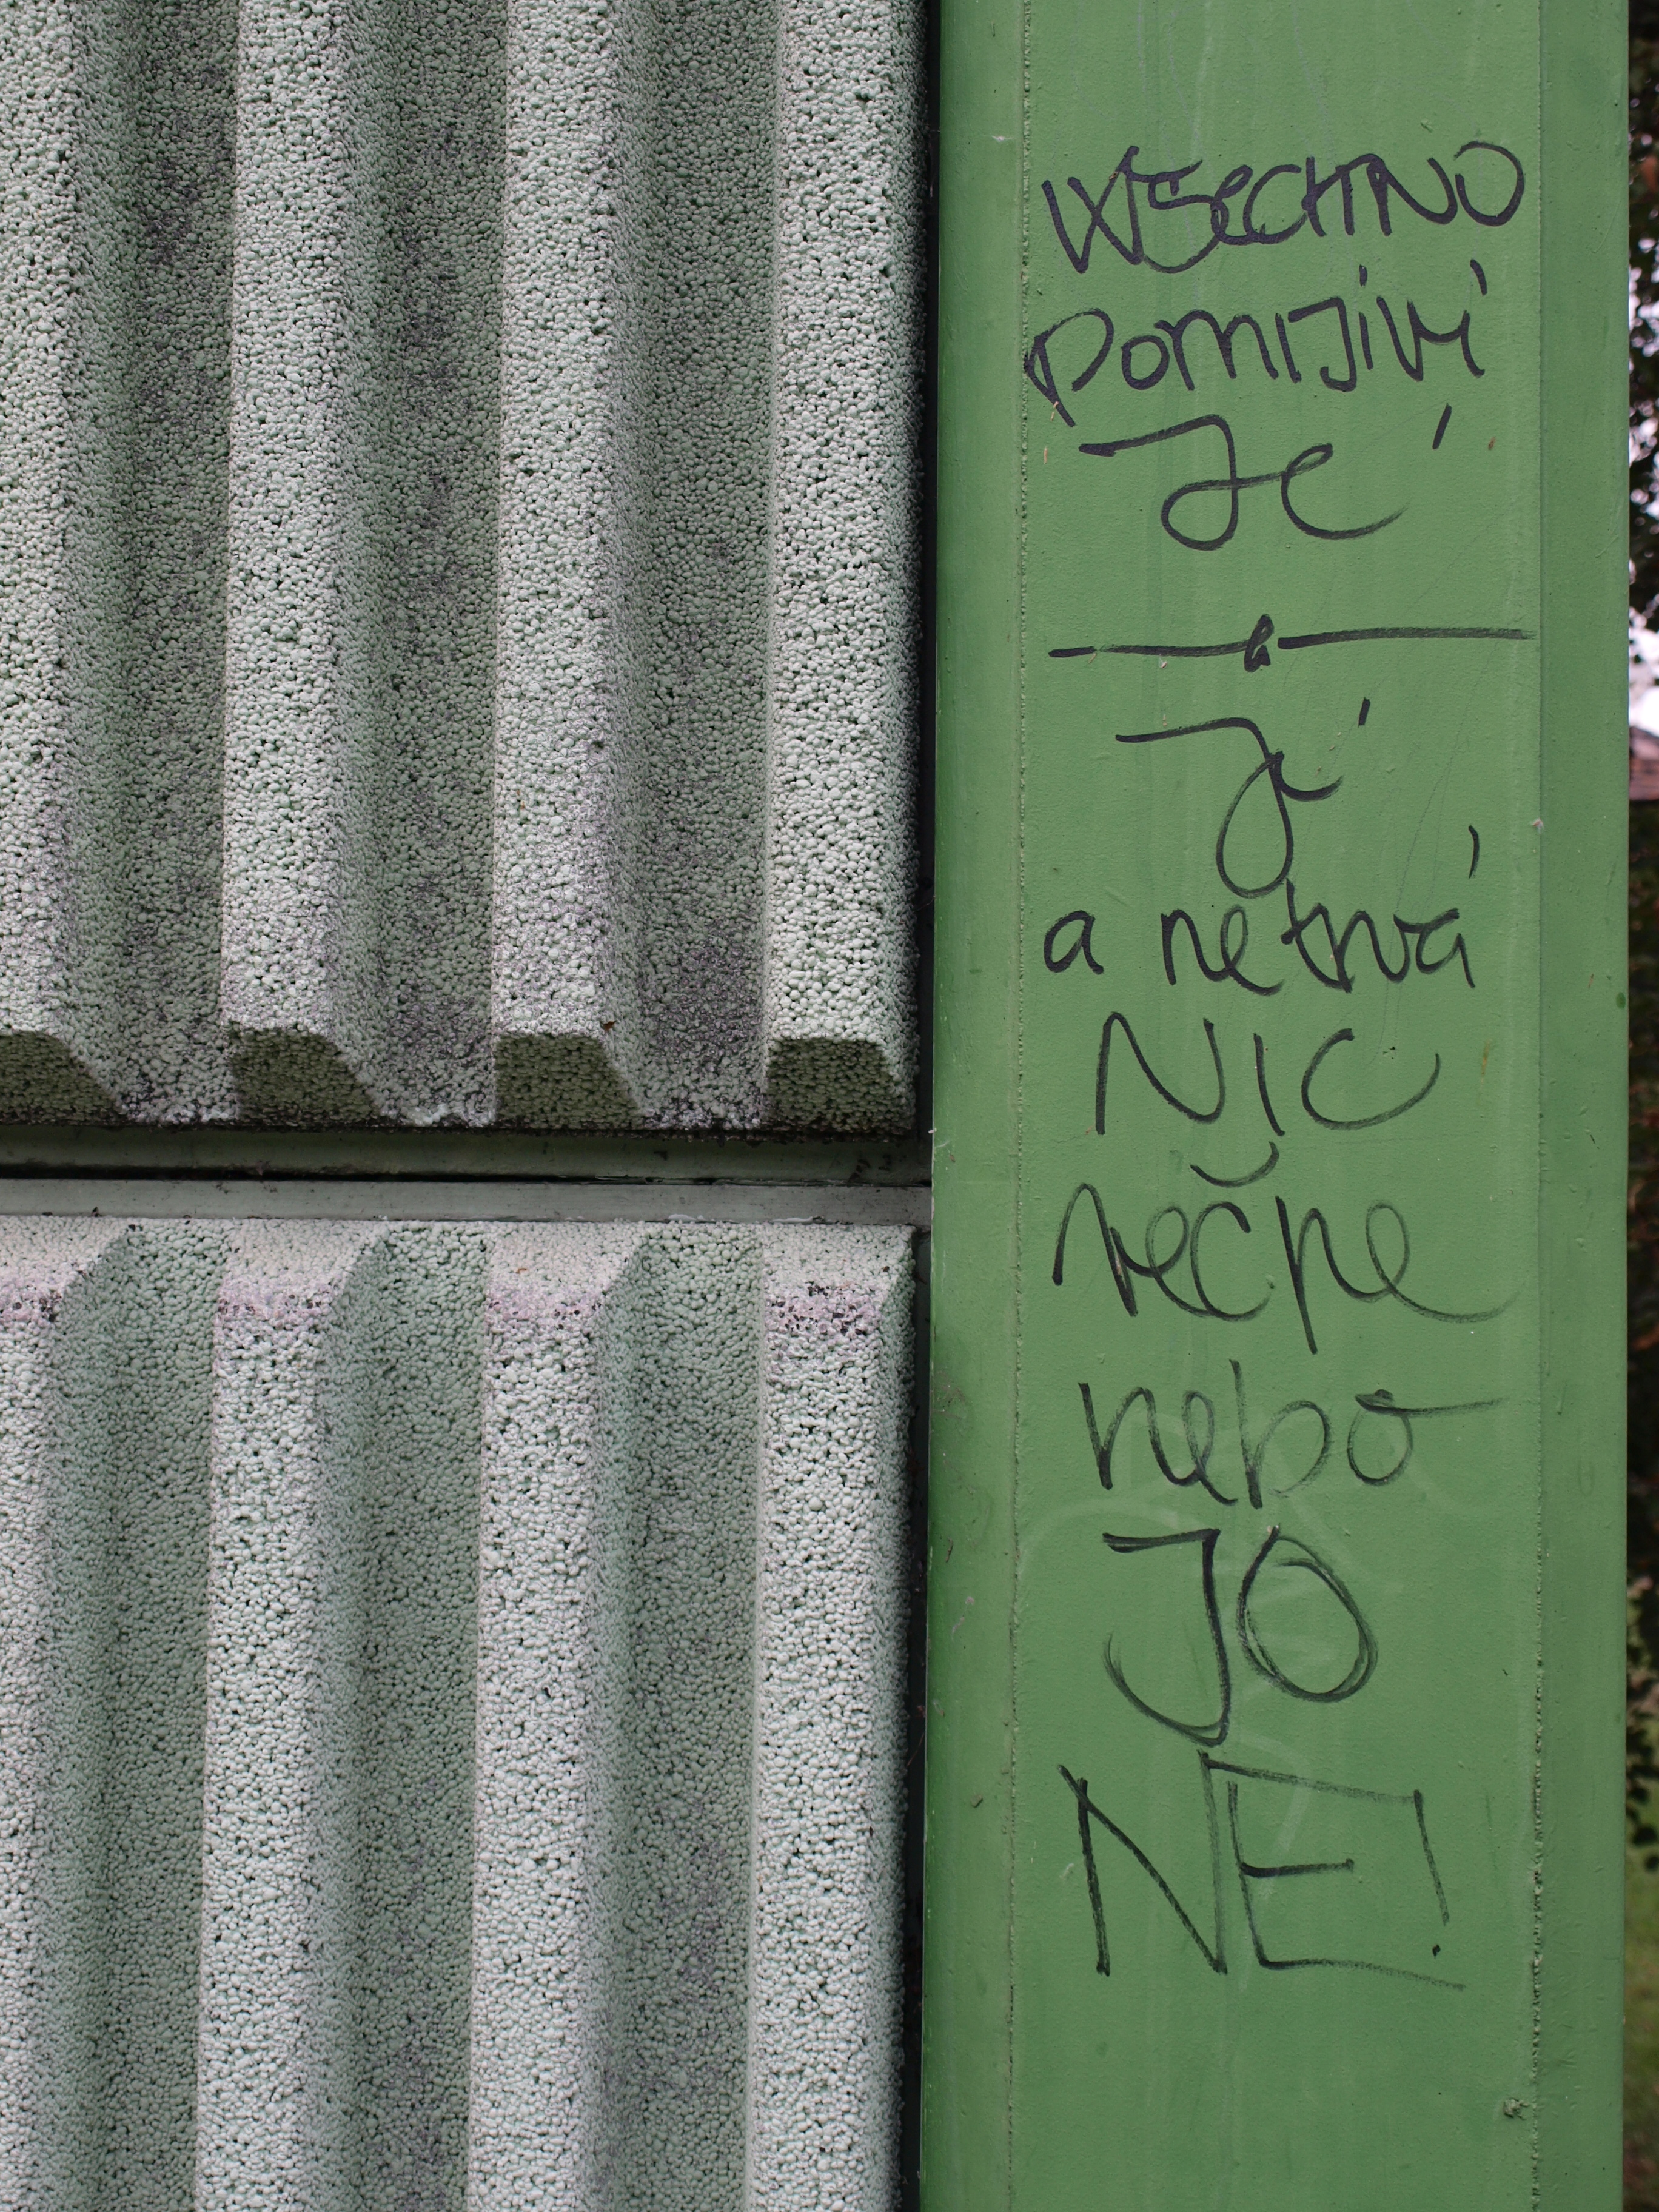 VŠeCHNO
POMIJIVÍ
Je
Já
a netrvá
NIC
věčne
nebo
JO
NE!